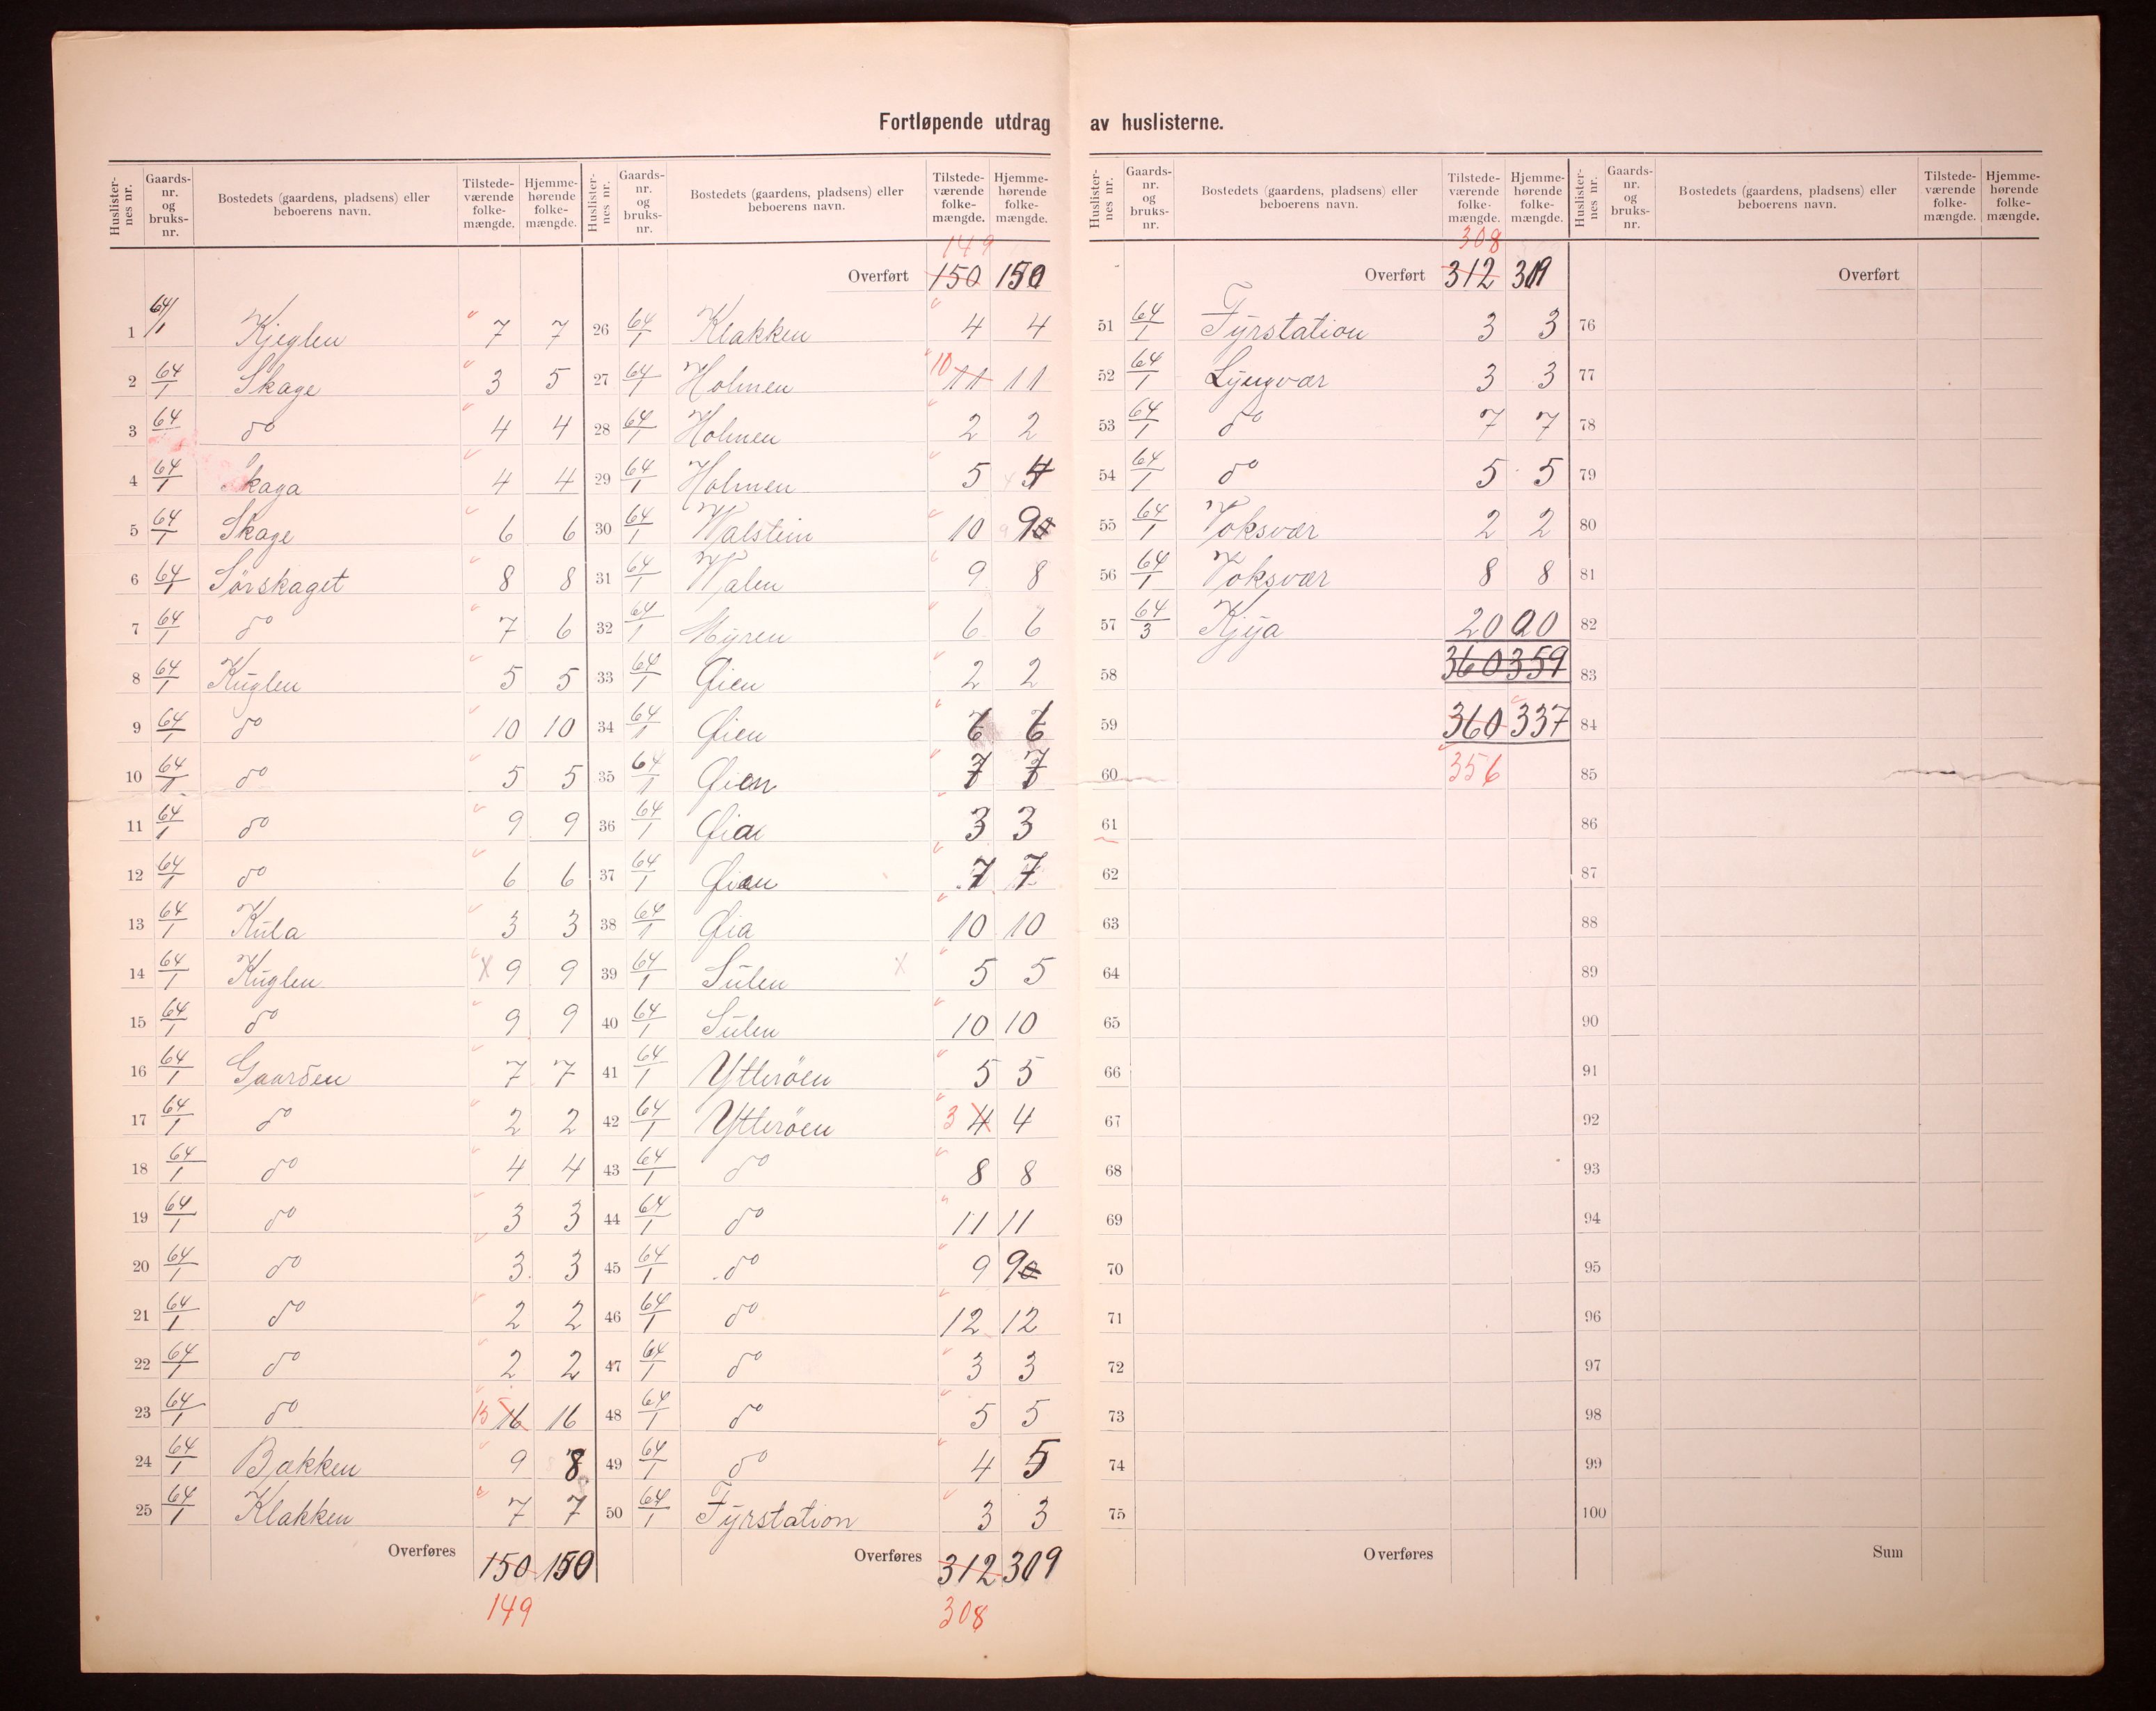 Fortløpende utdrag av huslisterne.
Huslisternes nr. Gaardsnr. og bruksnr. Bostedets (gaardens, pladsens) eller beboerens navn. Tilstedeværende folkemængde. Hjemmehørende folkemængde.
1 64/1 Kjeglen 7 7
2 64/1 Skage 3 5
3 64 do 4 4
4 64/1 Skaga 4 4
5 64/1 Skage 6 6
6 64/1 Sörskaget 8 8
7 64/1 do 7 6
8 64/1 Kuglen 5 5
9 64/1 do 10 10
10 64/1 do 5 5
11 64/1 do 9 9
12 64/1 do 6 6
13 64/1 Kula 3 3
14 64/1 Kuglen X 9 9
15 64/1 do 9 9
16 64/1 Gaarden 7 7
17 64/1 do 2 2
18 64/1 do 4 4
19 64/1 do 3 3
20 64/1 do 3 3
21 64/1 do 2 2
22 64/1 do 2 2
23 64/1 do 15 16 16
24 64/1 Bakken 9 8
25 64/1 Klakken 7 7
Overføres 150 150
149
Huslisternes nr. Gaardsnr. og bruksnr. Bostedets (gaardens, pladsens) eller beboerens navn. Tilstedeværende folkemængde. Hjemmehørende folkemængde.
149
Overført 150 150
26 64/1 Klakken 4 4
27 64/1 Holmen 10 11 11
28 64/1 Holmen 2 2
29 64/1 Holmen 5 4
30 64/1 Walstein 10 9
31 64/1 Walen 9 8
32 64/1 Myren 6 6
33 64/1 Øien 2 2
34 64/1 Øien 6 6
35 64/1 Øien 7 7
36 64/1 Øia 3 3
37 64/1 Øien 7 7
38 64/1 Øia 10 10
39 64/1 Sulen X 5 5
40 64/1 Sulen 10 10
41 64/1 Ytteröen 5 5
42 64/1 Ytteröen 3 4 4
43 64/1 do 8 8
44 64/1 do 11 11
45 64/1 do 9 9
46 64/1 do 12 12
47 64/1 do 3 3
48 64/1 do 5 5
49 64/1 do 4 5
50 64/1 Fyrstation 3 3
Overføres 312 309
308
Huslisternes nr. Gaardsnr. og bruksnr. Bostedets (gaardens, pladsens) eller beboerens navn. Tilstedeværende folkemængde. Hjemmehørende folkemængde.
308
Overført 312 309
51 64/1 Fyrstation 3 3
52 64/1 Lyngvær 3 3
53 64/1 do 7 7
54 64/1 do 5 5
55 64/1 Voksvær 2 2
56 64/1 Voksvær 8 8
57 64/3 Kjya 20
58 360 359
59 360 337
60 356
61
62
63
64
65
66
67
68
69
70
71
72
73
74
75
Overføres
Huslisternes nr. Gaardsnr. og bruksnr. Bostedets (gaardens, pladsens) eller beboerens navn. Tilstedeværende folkemængde. Hjemmehørende folkemængde.
Overført
76
77
78
79
80
81
82
83
84
85
86
87
88
89
90
91
92
93
94
95
96
97
98
99
100
Sum